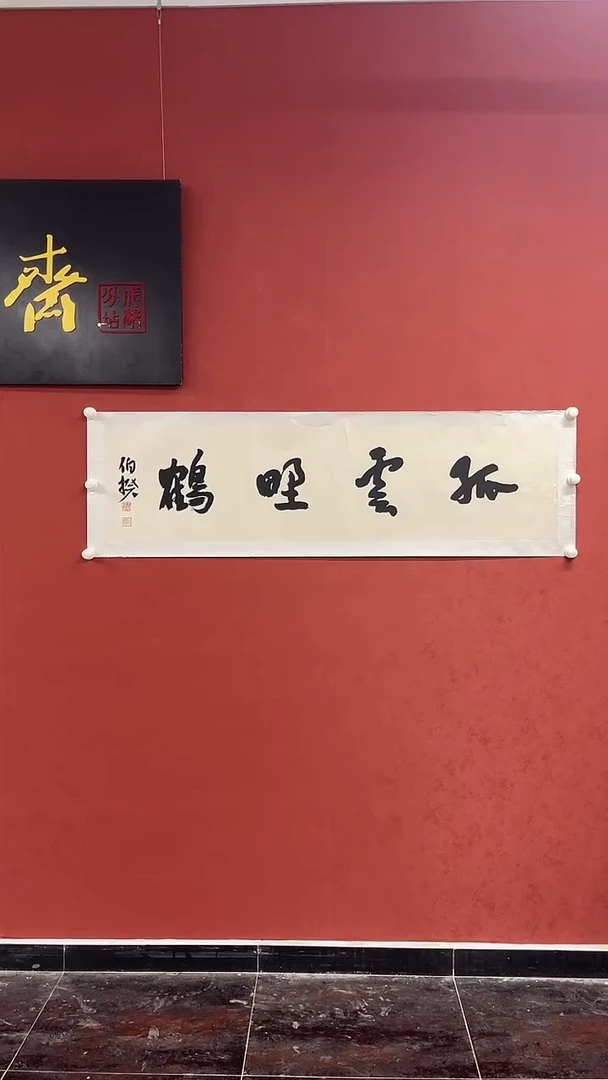 齋
孤雲野鶴
伯揆